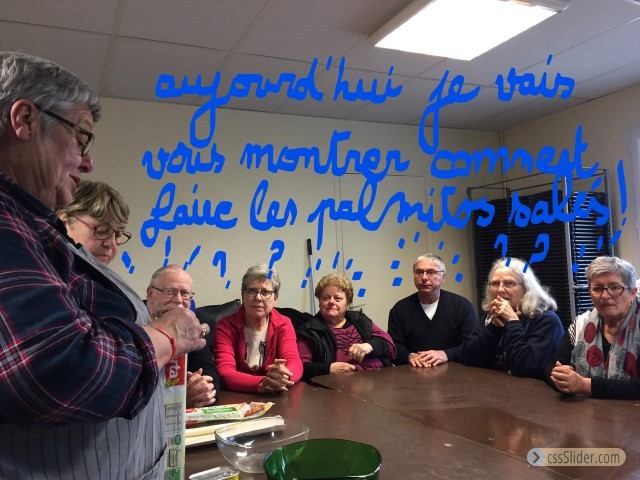 aujourd'hui je vais
vous montrer comment
faire les palmitos salés!
, ! , ? ? ! , , , ? ? , , ,
cssSlider.com